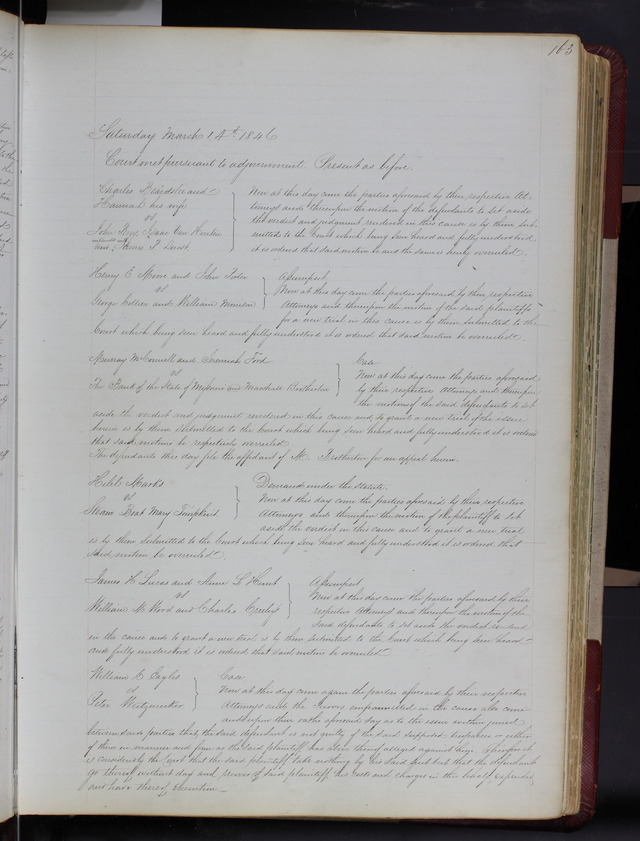 163
Saturday March 14th 1846
Court met pursuant to adjournment. Present as before.
Charles Beardslee and
Hannah his wife
vs
John Isaac Van
Now at this day come the parties aforesaid by their respective At-
torneys and thereupon the motion of the defendants to set aside
the verdict and judgment rendered in this cause is by them sub-
mitted to the Court which being seen heard and fully understood
it is ordered that said motion be and the same is hereby overruled.
Henry E Moore and John
vs
George Collier and William
Assumpsit
Now at this day come the parties aforesaid by their respective
Attorneys and thereupon the motion of the said plaintiffs
for a new trial in this cause is by them submitted to the
Court which being seen heard and fully understood it is ordered that said motion be overruled.
Murray McConnell and Jeremiah Ford
vs
The Bank of the State of Missouri and Marshall Brotherton
Case
Now at this day come the parties aforesaid
by their respective Attorneys and thereupon
the motion of the said defendants to set
aside the verdict and judgment rendered in this cause and to grant a new trial of the issue
herein is by them submitted to the Court which being seen heard and fully understood it is ordered
that said motion be respectively overruled.
The defendants this day file the affidavit of M. Brotherton for an appeal herein.
Marks
vs
Steam Boat Mary Tompkins
Demand under the Statute.
Now at this day come the parties aforesaid by their respective
Attorneys and thereupon the motion of the plaintiff to set
aside the verdict in this cause and to grant a new trial
is by them submitted to the Court which being seen heard and fully understood it is ordered that
said motion be overruled.
James H Lucas and Anne L Hunt
vs
William M Wood and Charles
Assumpsit
Now at this day come the parties aforesaid by their
respective Attorneys and thereupon the motion of the
said defendants to set aside the verdict rendered
in this cause and to grant a new trial is by them submitted to the Court which being seen heard
and fully understood it is ordered that said motion be overruled.
William S
vs
Peter
Case
Now at this day come again the parties aforesaid by their respective
Attorneys and the Jurors empannelled in this cause also come
and upon their oaths aforesaid say as to the issue within joined
between said parties that the said defendant is not guilty of the said supposed or either
of them in manner and form as the said plaintiff has above thereof alleged against him. Therefore it
is considered by the Court that the said plaintiff take nothing by his said suit but that the defendant
go thereof without day and recover of said plaintiff his costs and charges in this behalf expended
and have thereof Execution